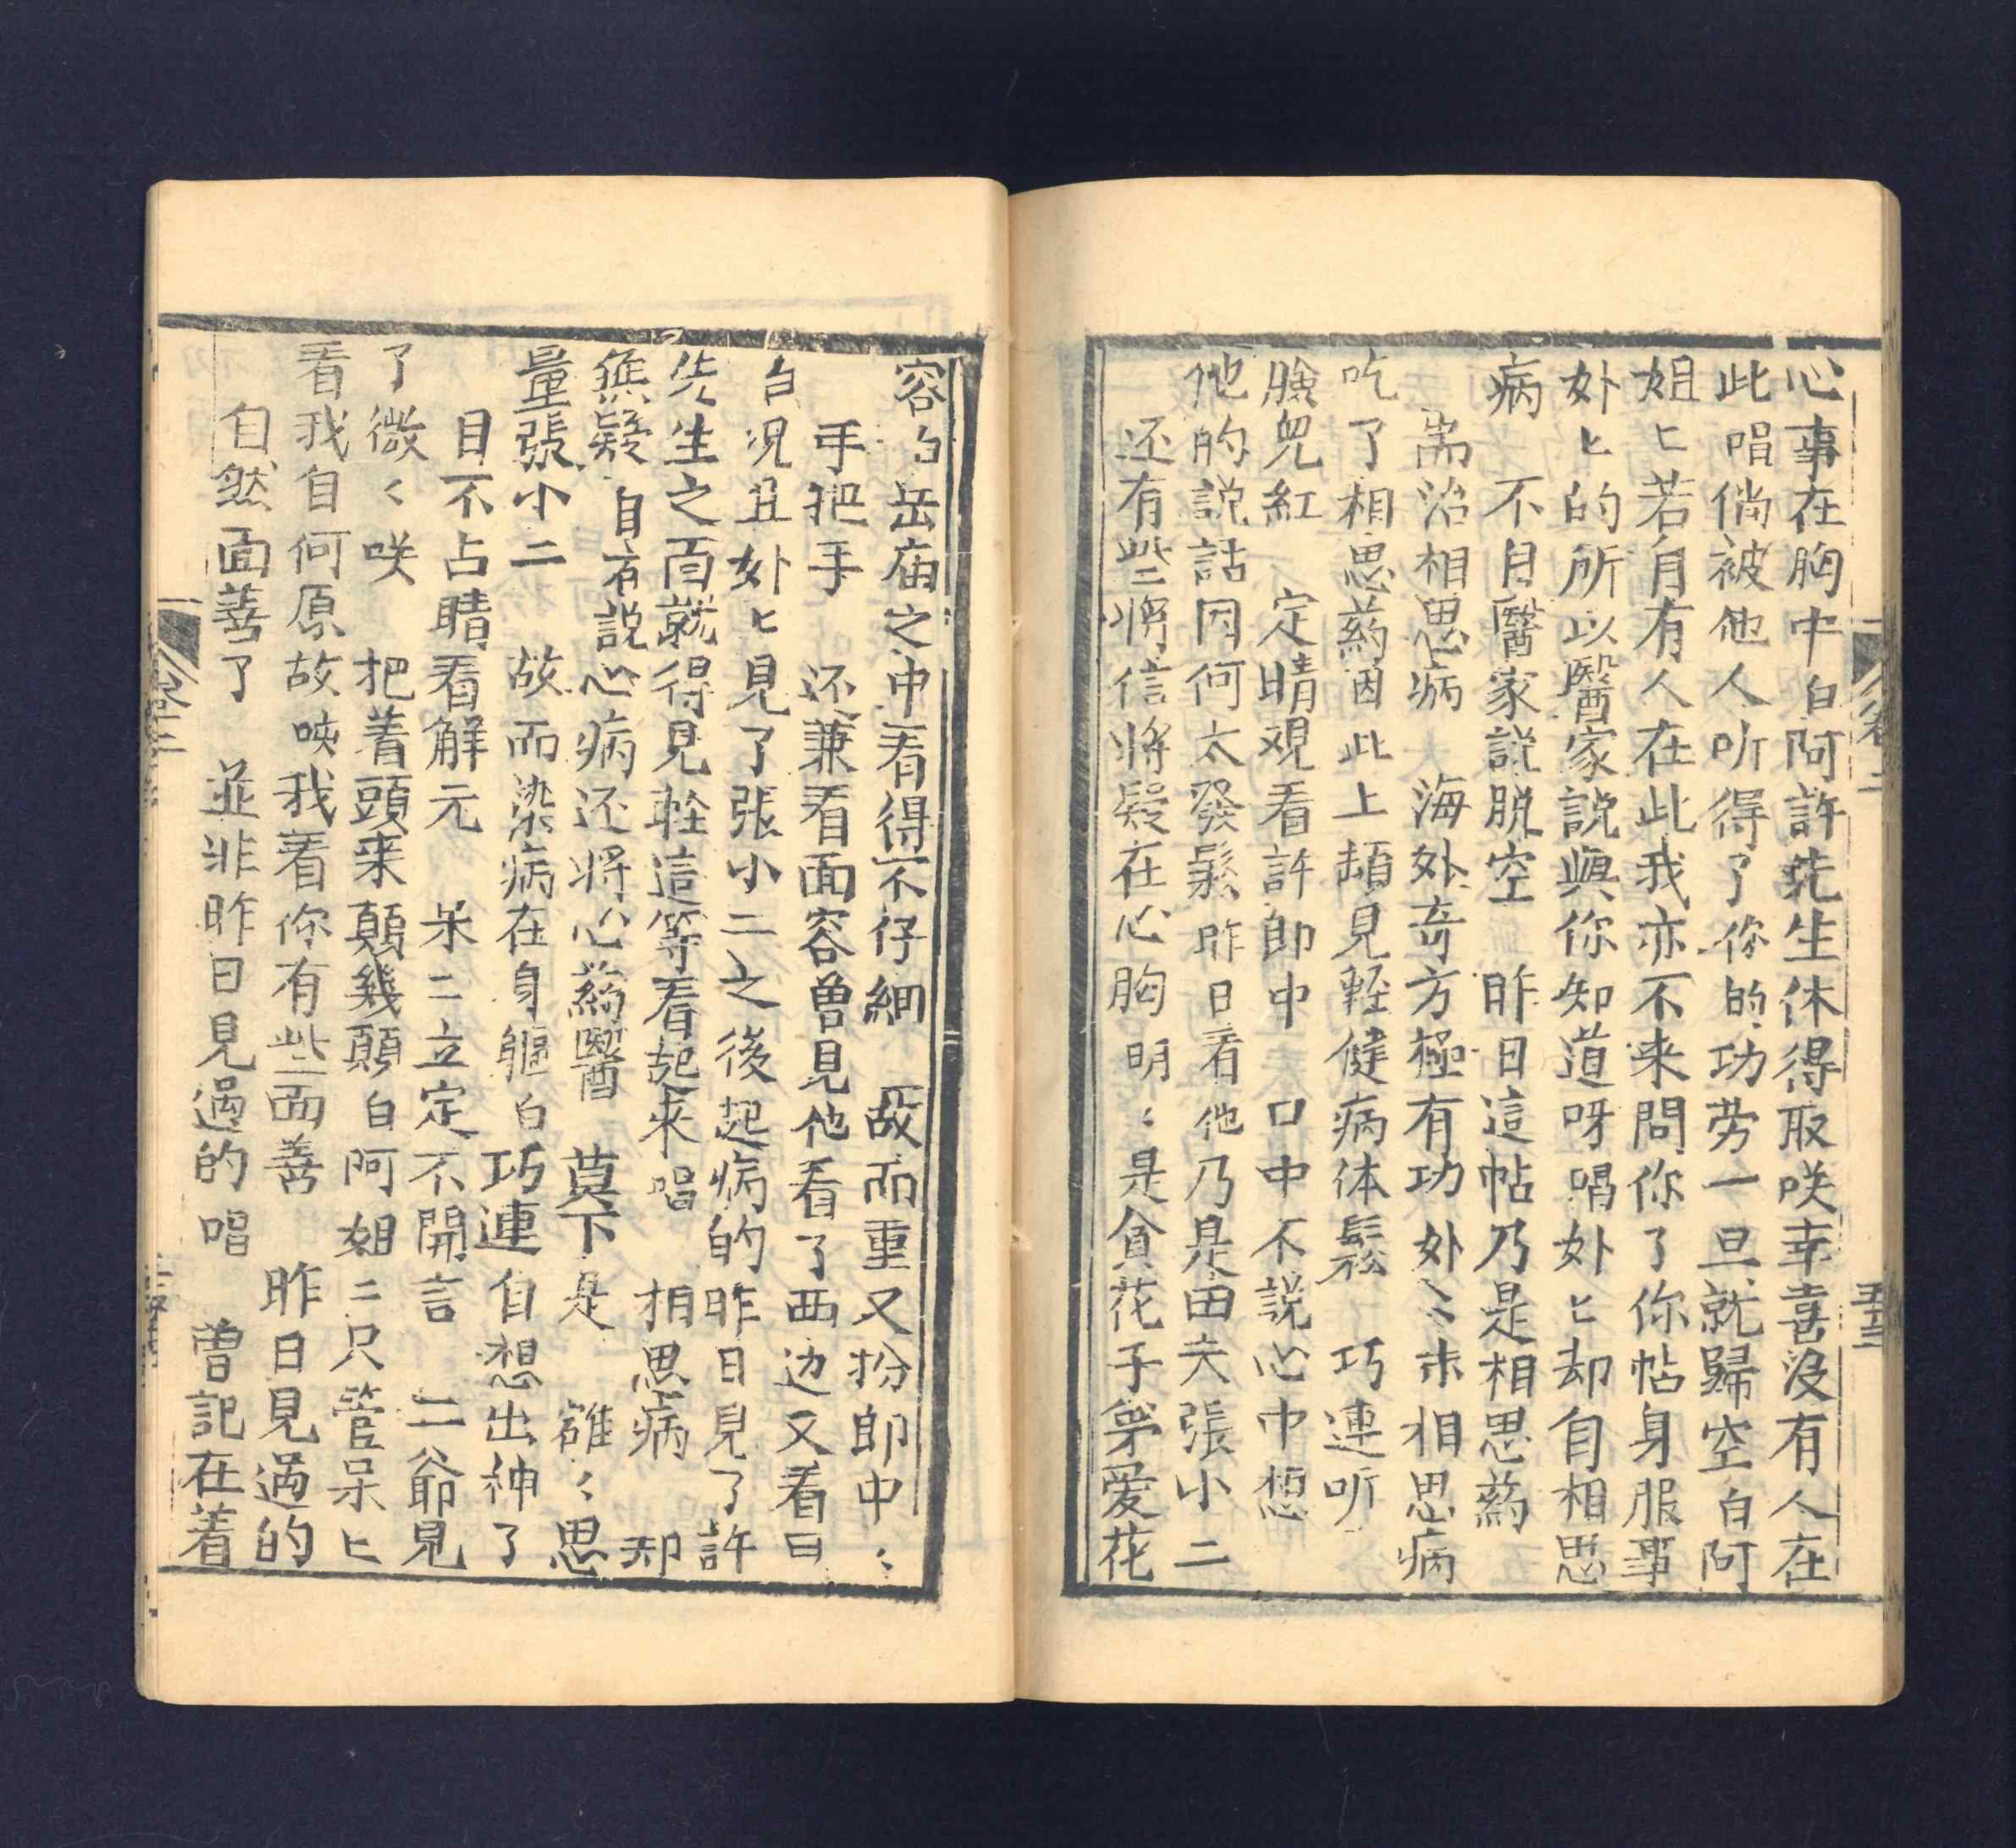 心事在胸中白阿許先生休得取咲幸喜没有人在
此唱倘被他人听得了你的功劳一旦就歸空白阿
姐匕若自有人在此我亦不来問你了你帖身服事
奶匕的所以醫家説與你知道呀唱奶匕却自相思
病　不自醫家説脱空　昨日這帖乃是相思药
耑治相思病　海外奇方極有功　奶〻未相思病
吃了相思药因此上頡見輕健病体鬆　巧連听
臉兜紅　定晴观看許郎中　口中不説心中想
他的説話因何太發鬆昨日看他乃是田夫張小二
还有些將信將疑在心胸明〻是貪花子寧爱花
卷二
五十三
容白岳庙之中看得不仔細　故而重又扮郎中〻
手把手　还兼看面容曽見他看了西边又看曰
白况且奶匕見了張小二之後起病的昨日見了許
先生之面就得見輕這等看起来唱　相思病　却
無疑　自古説心病还將心药醫　莫下是　誰〻思
量張小二　故而染病在身軀白巧連自想出神了
目不占睛看解元　呆二立定不開言　二爺見
了微〻咲　把着頭来顛幾顛白阿姐二只管呆匕
看我自何原故唤我看你有些面善　昨日見過的
自然面善了　並非昨日見過的唱　曽記在着
卷二